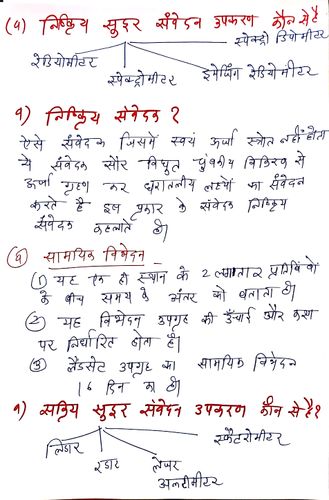 (५) निष्क्रिय सुदूर संवेदन उपकरण कौन से है
स्पेक्ट्रो रेडियोमीटर
रेडियोमीटर
स्पेक्ट्रोमीटर
इमेजिंग रेडियोमीटर
१) निष्क्रिय संवेदक ?
ऐसे संवेदक जिसमें स्वयं ऊर्जा स्त्रोत नहीं होता
ये संवेदक सौर विद्युत चुंबकीय विकिरण से
ऊर्जा ग्रहण कर धरातलीय लक्ष्यों का संवेदन
करते है इस प्रकार के संवेदक निष्क्रिय
संवेदक कहलाते है।
सामयिक विभेदन -
(1) यह एक ही स्थान के 2 लगातार प्रतिबिंबो
के बीच समय के अंतर को बताता है।
(2) यह विभेदन उपग्रह की ऊँचाई और कक्षा
पर निर्धारित होता है।
(3) लैंडसेट उपग्रह का सामयिक विभेदन
16 दिन का है।
१) सक्रिय सुदूर संवेदन उपकरण कौन से है?
लिडार
रडार
लेजर
अल्टीमीटर
स्कैटरोमीटर